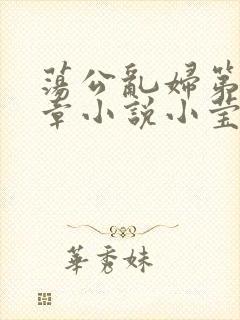 蕩公亂婦第
章小說小瑩
華秀妹